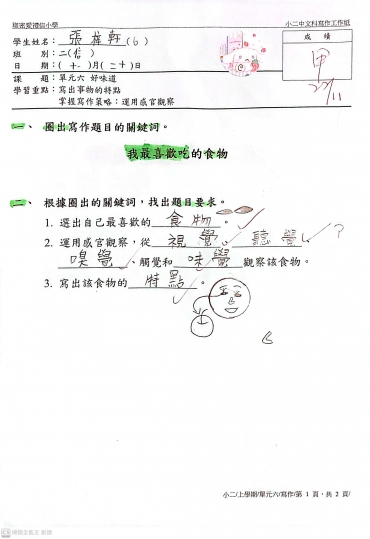 瑪密愛禮信小學 小二中文科寫作工作紙
學生姓名：張梓軒(6) 成績
班別：二(信) 甲
日期：(十一)月(二十)日 22/11
課題：單元六 好味道
學習重點：寫出事物的特點
掌握寫作策略：運用感官觀察
一、 圈出寫作題目的關鍵詞。
我最喜歡吃的食物
二、 根據圈出的關鍵詞，找出題目要求。
1. 選出自己最喜歡的 食物 。
2. 運用感官觀察，從 視覺 、 聽覺 、 ?
嗅覺 、觸覺和 味覺 觀察該食物。
3. 寫出該食物的 特點 。
小二/上學期/單元六/寫作/第 1 頁，共 2 頁/